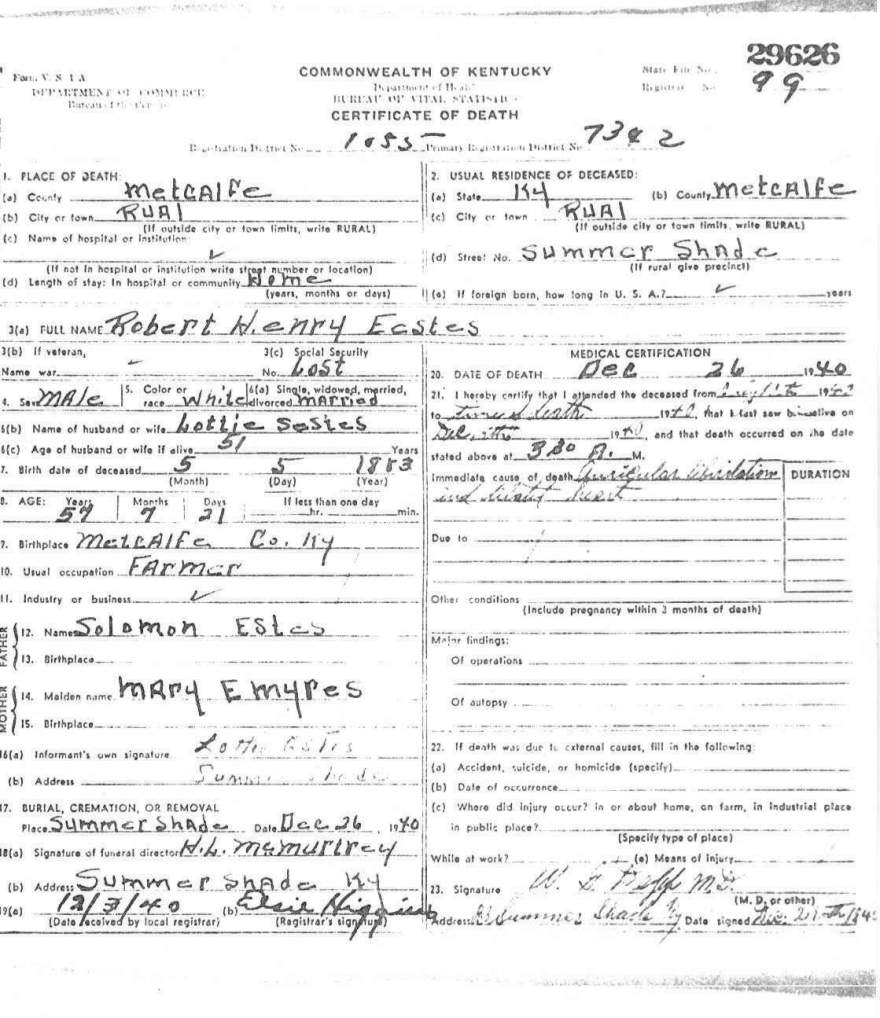 29626
Form V. S. 1 A
COMMONWEALTH OF KENTUCKY
State File No.
DEPARTMENT OF COMMERCE
Department of Health
Registrar No. 99
Bureau of the Census
BUREAU OF VITAL STATISTICS
CERTIFICATE OF DEATH
Registration District No. 1055 Primary Registration District No. 7342
1. PLACE OF DEATH:
(a) County Metcalfe
(b) City or town Rual
(If outside city or town limits, write RURAL)
(c) Name of hospital or institution:
(If not in hospital or institution write street number or location)
(d) Length of stay: In hospital or community Home
(years, months or days)
2. USUAL RESIDENCE OF DECEASED:
(a) State Ky (b) County Metcalfe
(c) City or town Rual
(If outside city or town limits, write RURAL)
(d) Street No. Summer Shade
(If rural give precinct)
(e) If foreign born, how long in U. S. A.? years
3(a) FULL NAME Robert Henry Eestes
3(b) If veteran,
Name war
3(c) Social Security
No. Lost
4. Sex Male
5. Color or
race White
6(a) Single, widowed, married,
divorced married
6(b) Name of husband or wife Lottie Sestes
6(c) Age of husband or wife if alive 51 Years
7. Birth date of deceased 5 5 1883
(Month) (Day) (Year)
8. AGE: Years Months Days If less than one day
57 7 21 hr. min.
9. Birthplace Metcalfe Co. Ky
10. Usual occupation Farmer
11. Industry or business
FATHER
12. Name Solomon Estes
13. Birthplace
MOTHER
14. Maiden name Mary E Mypes
15. Birthplace
16(a) Informant's own signature Lottie Estes
(b) Address Summer Shade
17. BURIAL, CREMATION, OR REMOVAL
Place Summer Shade Date Dec 26, 1940
18(a) Signature of funeral director H.L. McMurtrey
(b) Address Summer Shade Ky
19(a) 12/3/40 (b) Elsie Higgins
(Date received by local registrar) (Registrar's signature)
MEDICAL CERTIFICATION
20. DATE OF DEATH Dec 26 1940
21. I hereby certify that I attended the deceased from 1940
to time of death 1940, that I last saw him alive on
Dec. 1940, and that death occurred on the date
stated above at 3:30 A. M.
Immediate cause of death Auricular
and heart
DURATION
Due to
Other conditions
(Include pregnancy within 3 months of death)
Major findings:
Of operations
Of autopsy
22. If death was due to external causes, fill in the following:
(a) Accident, suicide, or homicide (specify)
(b) Date of occurrence
(c) Where did injury occur? in or about home, on farm, in industrial place
in public place?
(Specify type of place)
While at work? (e) Means of injury
23. Signature W. M.D.
(M. D. or other)
Address Summer Shade Ky Date signed Dec. 1940